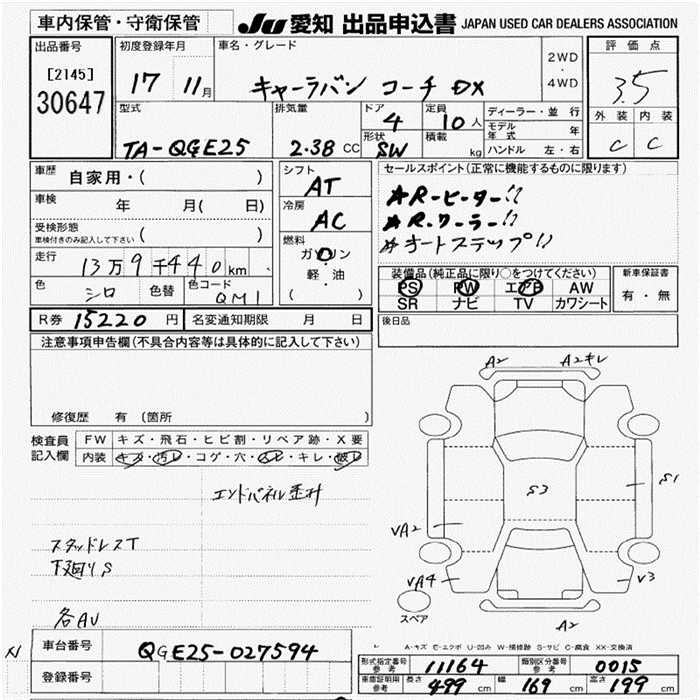 車内保管・守衛保管
JU 愛知 出品申込書 JAPAN USED CAR DEALERS ASSOCIATION
出品番号
[2145]
30647
初度登録年月
17 11月
車名・グレード
キャーラバン コーチ DX
2WD
・
4WD
評価点
3.5
外装 内装
C C
型式
TA-QGE25
排気量
2.38 CC
ドア
4
形状
SW
定員
10人
積載
kg
ディーラー・並行
モデル年式 年
ハンドル 左・右
車歴
自家用・( )
車検
年 月( 日)
受検形態
車検付きのみ記入して下さい ( )
走行
13万9千440km
色
シロ
色替
色コード
QM1
シフト
AT
冷房
AC
燃料
ガソリン
軽・油
( )
セールスポイント(正常に機能するものに限ります)
★R-ヒーター!!
★R.クーラー!!
★オートステップ!!
装備品(純正品に限り○をつけてください)
PS PW エアB AW
SR ナビ TV カワシート
新車保証書
有・無
R券 15220 円
名変通知期限 月 日
後日品
注意事項申告欄(不具合内容等は具体的に記入して下さい)
修復歴 有(箇所 )
検査員記入欄
FW キズ・飛石・ヒビ割・リペア跡・X要
内装 キズ・汚レ・コゲ・穴・スレ・キレ・破レ
エンドパネル歪ミ
スタッドレスT
下廻りS
各AU
A2 A2キレ
S3
S1
VA2
VA4
V3
A2
スペア
A-キズ E-エクボ U-凹み W-補修跡 S-サビ C-腐食 XX-交換済
N
車台番号
QGE25-027594
登録番号
形式指定番号 参考 11164
類別区分番号 参考 0015
車庫証明用 参考 長さ 499 cm 幅 169 cm 高さ 199 cm